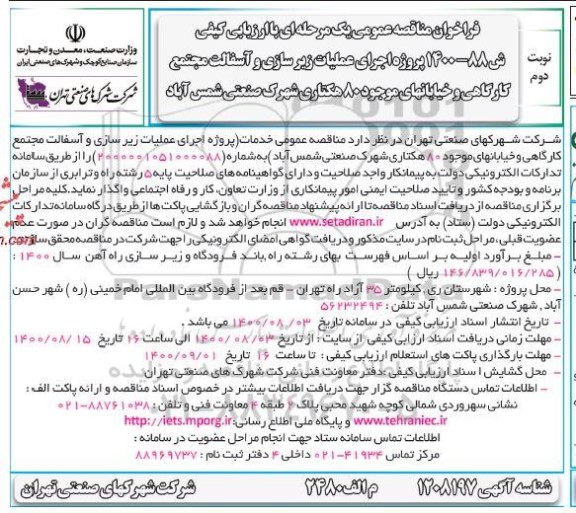 وزارت صنعت، معدن و تجارت
سازمان صنایع کوچک و شهرکهای صنعتی ایران
شرکت شهرکهای صنعتی تهران
فراخوان مناقصه عمومی یک مرحله ای با ارزیابی کیفی
ش ۸۸-۱۴۰۰ پروژه اجرای عملیات زیر سازی و آسفالت مجتمع
کارگاهی و خیابانهای موجود ۸۰ هکتاری شهرک صنعتی شمس آباد
نوبت
دوم
شرکت شهرکهای صنعتی تهران در نظر دارد مناقصه عمومی خدمات (پروژه اجرای عملیات زیر سازی و آسفالت مجتمع
کارگاهی و خیابانهای موجود ۸۰ هکتاری شهرک صنعتی شمس آباد) به شماره (۲۰۰۰۰۰۱۰۵۱۰۰۰۰۸۸) را از طریق سامانه
تدارکات الکترونیکی دولت به پیمانکار واجد صلاحیت و دارای گواهینامه های صلاحیت پایه ۵ رشته راه و ترابری از سازمان
برنامه و بودجه کشور و تأیید صلاحیت ایمنی امور پیمانکاری از وزارت تعاون، کار و رفاه اجتماعی واگذار نماید. کلیه مراحل
برگزاری مناقصه از دریافت اسناد مناقصه تا ارائه پیشنهاد مناقصه گران و بازگشایی پاکت ها از طریق درگاه سامانه تدارکات
الکترونیکی دولت (ستاد) به آدرس www.setadiran.ir انجام خواهد شد و لازم است مناقصه گران در صورت عدم
عضویت قبلی، مراحل ثبت نام در سایت مذکور و دریافت گواهی امضای الکترونیکی را جهت شرکت در مناقصه محقق سازند.
- مبلغ برآورد اولیه بر اساس فهرست بهای رشته راه، باند فرودگاه و زیر سازی راه آهن سال ۱۴۰۰ :
(۱۴۶/۸۳۹/۰۱۶/۲۸۵ ریال)
- محل پروژه : شهرستان ری، کیلومتر ۳۵ آزاد راه تهران - قم بعد از فرودگاه بین المللی امام خمینی (ره) شهر حسن
آباد، شهرک صنعتی شمس آباد تلفن : ۵۶۲۳۲۴۹۴
- تاریخ انتشار اسناد ارزیابی کیفی در سامانه تاریخ ۱۴۰۰/۰۸/۰۳ می باشد.
- مهلت زمانی دریافت اسناد ارزیابی کیفی از سایت : از تاریخ ۱۴۰۰/۰۸/۰۳ الی ساعت ۱۶ تاریخ ۱۴۰۰/۰۸/۱۵
- مهلت بارگذاری پاکت های استعلام ارزیابی کیفی : تا ساعت ۱۶ تاریخ ۱۴۰۰/۰۹/۰۱
- محل گشایش اسناد ارزیابی کیفی : دفتر معاونت فنی شرکت شهرک های صنعتی تهران
- اطلاعات تماس دستگاه مناقصه گزار جهت دریافت اطلاعات بیشتر در خصوص اسناد مناقصه و ارائه پاکت الف :
نشانی سهروردی شمالی کوچه شهید محبی پلاک ۶ طبقه ۴ معاونت فنی و تلفن : ۸۸۷۶۱۰۳۸-۰۲۱
www.tehraniec.ir و پایگاه ملی اطلاع رسانی: http://iets.mporg.ir
اطلاعات تماس سامانه ستاد جهت انجام مراحل عضویت در سامانه :
مرکز تماس ۴۱۹۳۴-۰۲۱ داخلی ۴ دفتر ثبت نام : ۸۸۹۶۹۷۳۷
شناسه آگهی ۱۲۰۸۱۹۷
م الف ۲۴۸۰
شرکت شهرکهای صنعتی تهران